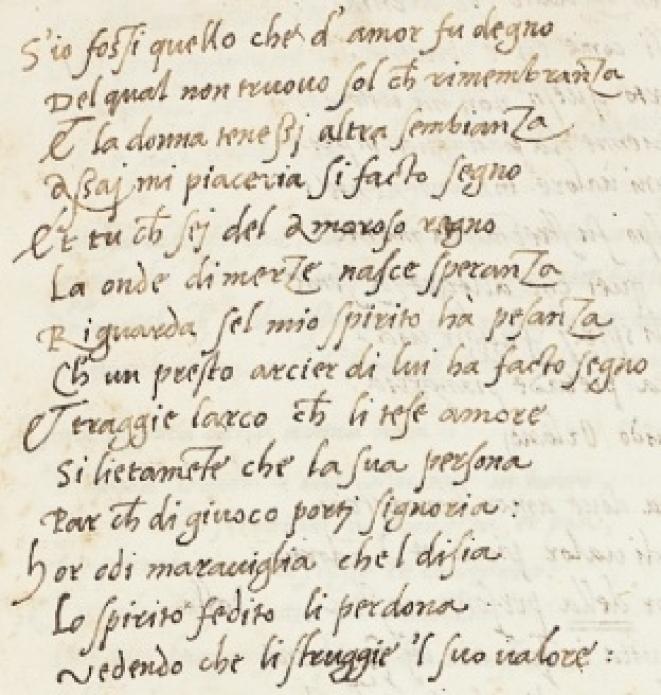 S'io fossi quello che d'amor fu degno
Del qual non truovo sol ch̄ rimembranza
E la donna tenessj altra sembianza
Assaj mi piaceria si facto segno
Et tu ch̄ sej del Amoroso regno
La onde di merze nasce speranza
Riguarda sel mio spirito hà pesanza
Ch̄ un presto arcier di lui ha facto segno
E traggie larco ch̄ li tese amore
Si lietamēte che la sua persona
Par ch̄ di giuoco portj signoria:
Hor odi maraviglia chel disia
Lo spirito fedito li perdona
Vedendo che li struggie 'l suo valore: